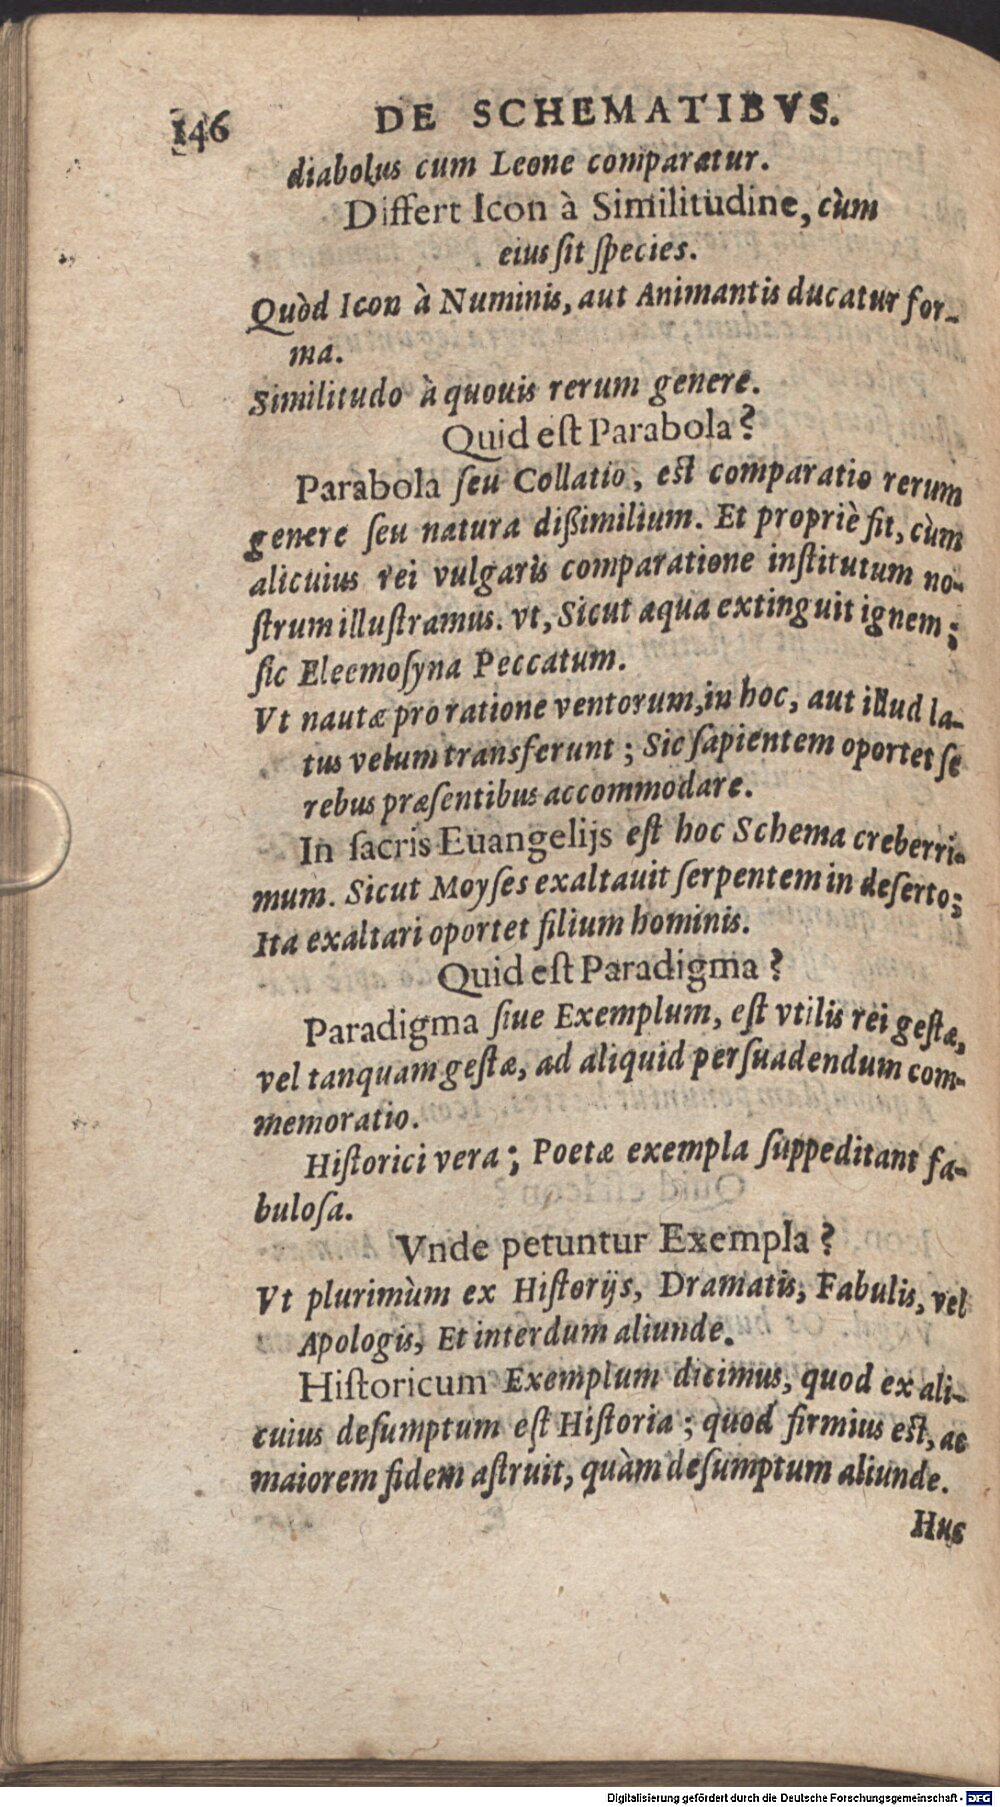 146 DE SCHEMATIBVS.
diabolus cum Leone comparatur.
Differt Icon à Similitudine, cùm
eius ſit ſpecies.
Quòd Icon à Numinis, aut Animantis ducatur for-
ma.
Similitudo à quouis rerum genere.
Quid eſt Parabola?
Parabola ſeu Collatio, est comparatio rerum
genere ſeu natura dißimilium. Et propriè fit, cùm
alicuius rei vulgaris comparatione inſtitutum no-
ſtrum illuſtramus. vt, Sicut aqua extinguit ignem;
ſic Eleemoſyna Peccatum.
Vt nautæ pro ratione ventorum, in hoc, aut illud la-
tus velum transferunt; Sic ſapientem oportet ſe
rebus præſentibus accommodare.
In ſacris Euangelijs eſt hoc Schema creberri-
mum. Sicut Moyſes exaltauit ſerpentem in deſerto;
Ita exaltari oportet filium hominis.
Quid eſt Paradigma?
Paradigma ſiue Exemplum, eſt vtilis rei geſtæ,
vel tanquam geſtæ, ad aliquid perſuadendum com-
memoratio.
Hiſtorici vera; Poetæ exempla ſuppeditant fa-
buloſa.
Vnde petuntur Exempla?
Vt plurimùm ex Hiſtorijs, Dramatis, Fabulis, vel
Apologis, Et interdum aliunde.
Hiſtoricum Exemplum dicimus, quod ex ali-
cuius deſumptum eſt Hiſtoria; quod firmius eſt, ac
maiorem fidem aſtruit, quàm deſumptum aliunde.
Huc
Digitalisierung gefördert durch die Deutsche Forschungsgemeinschaft - DFG